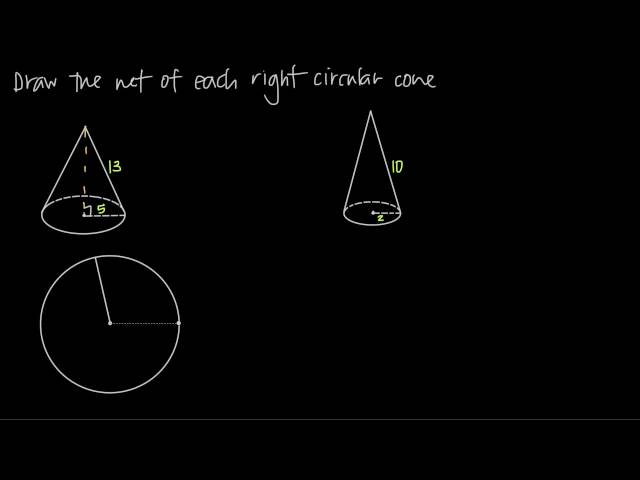 Draw the net of each right circular cone
13
10
5
2